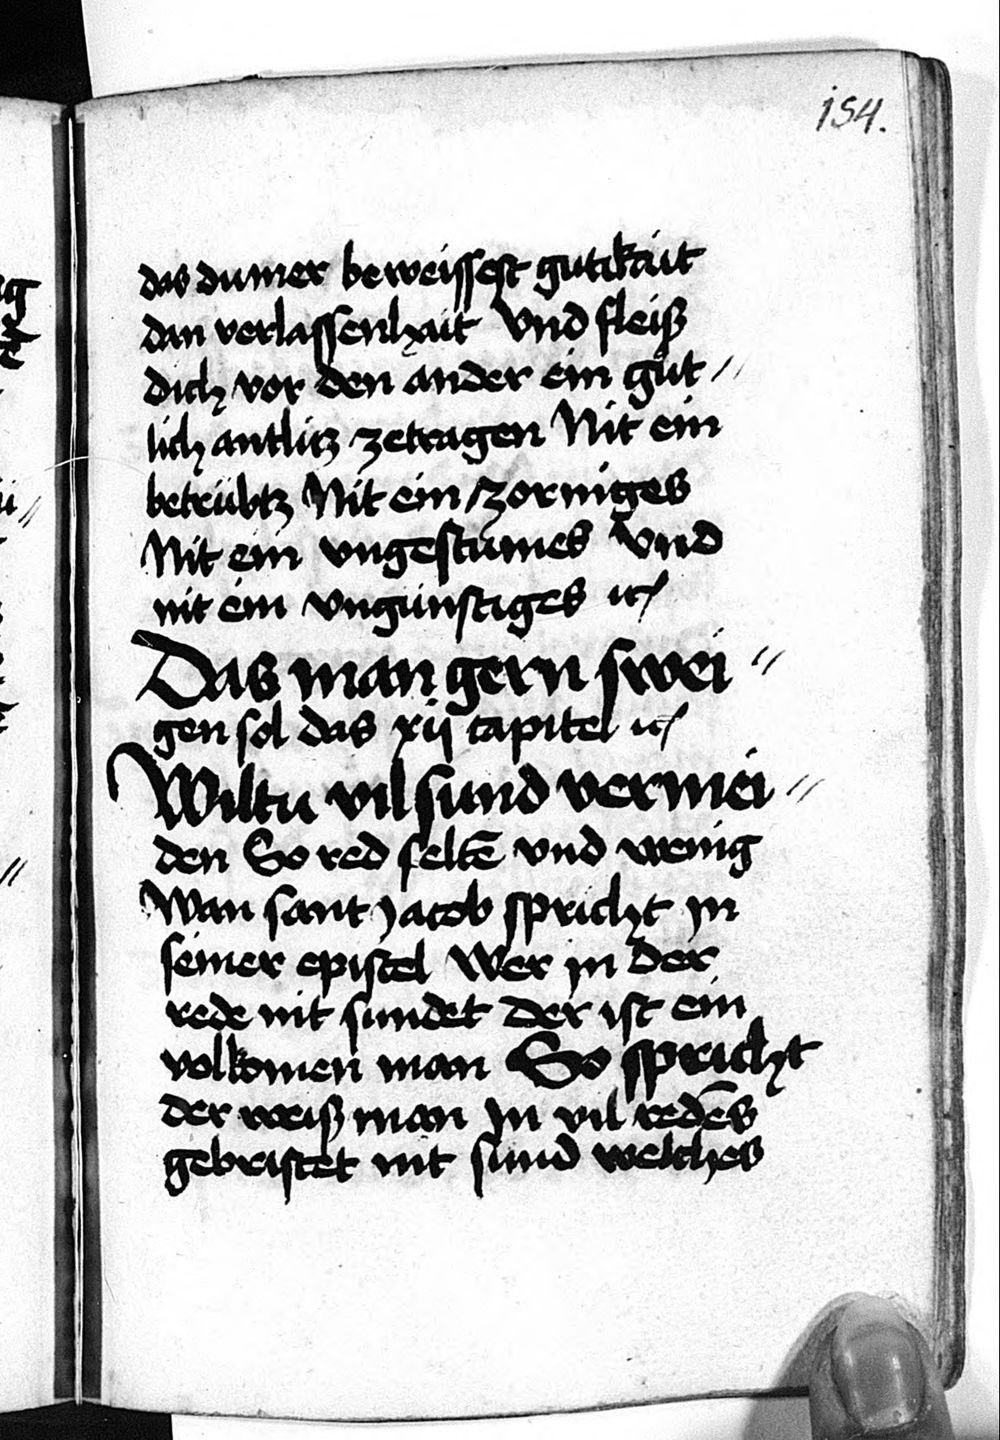 154.
das du mer beweissest gutikait
dan verlassenhait Vnd fleiß
dich vor den ander ein gut //
lich antlitz zetragen Nit ein
betrübtz Nit ein zorniges
Nit ein vngestümes Vnd
nit ein vngünstiges
Das man gern swei //
gen sol das xij capitel
Wiltu vil sund vermei //
den So red seltē vnd wenig
Wan sant jacob spricht jn
seiner epistel Wer jn der
rede nit sundet Der ist ein
volkomen man So spricht
der weiß man Jn vil redēs
gebristet nit sund welches